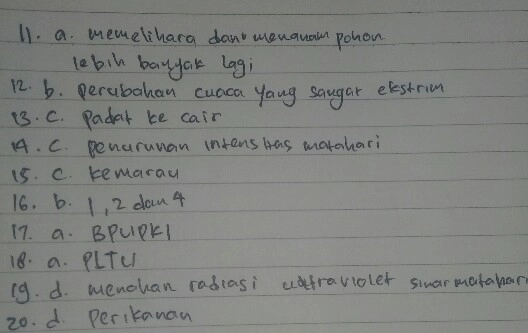 11. a. memelihara dan menanam pohon
lebih banyak lagi
12. b. perubahan cuaca yang sangat ekstrim
13. c. padat ke cair
14. c. penurunan intensitas matahari
15. c. kemarau
16. b. 1, 2 dan 4
17. a. BPUPKI
18. a. PLTU
19. d. menahan radiasi ultraviolet sinar matahari
20. d. perikanan